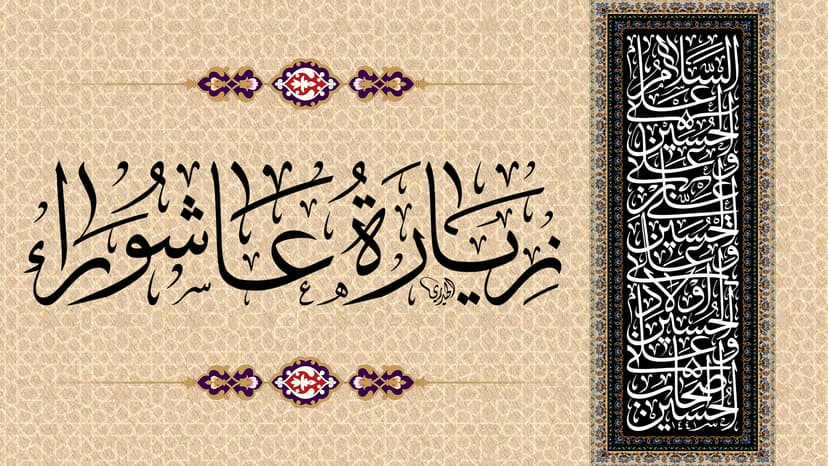 زِيَارَةُ عَاشُورَاء
السَّلَامُ
عَلَى
الْحُسَيْنِ
وَعَلَى
عَلِيِّ بْنِ
الْحُسَيْنِ
وَعَلَى
أَوْلَادِ
الْحُسَيْنِ
وَعَلَى
أَصْحَابِ
الْحُسَيْنِ